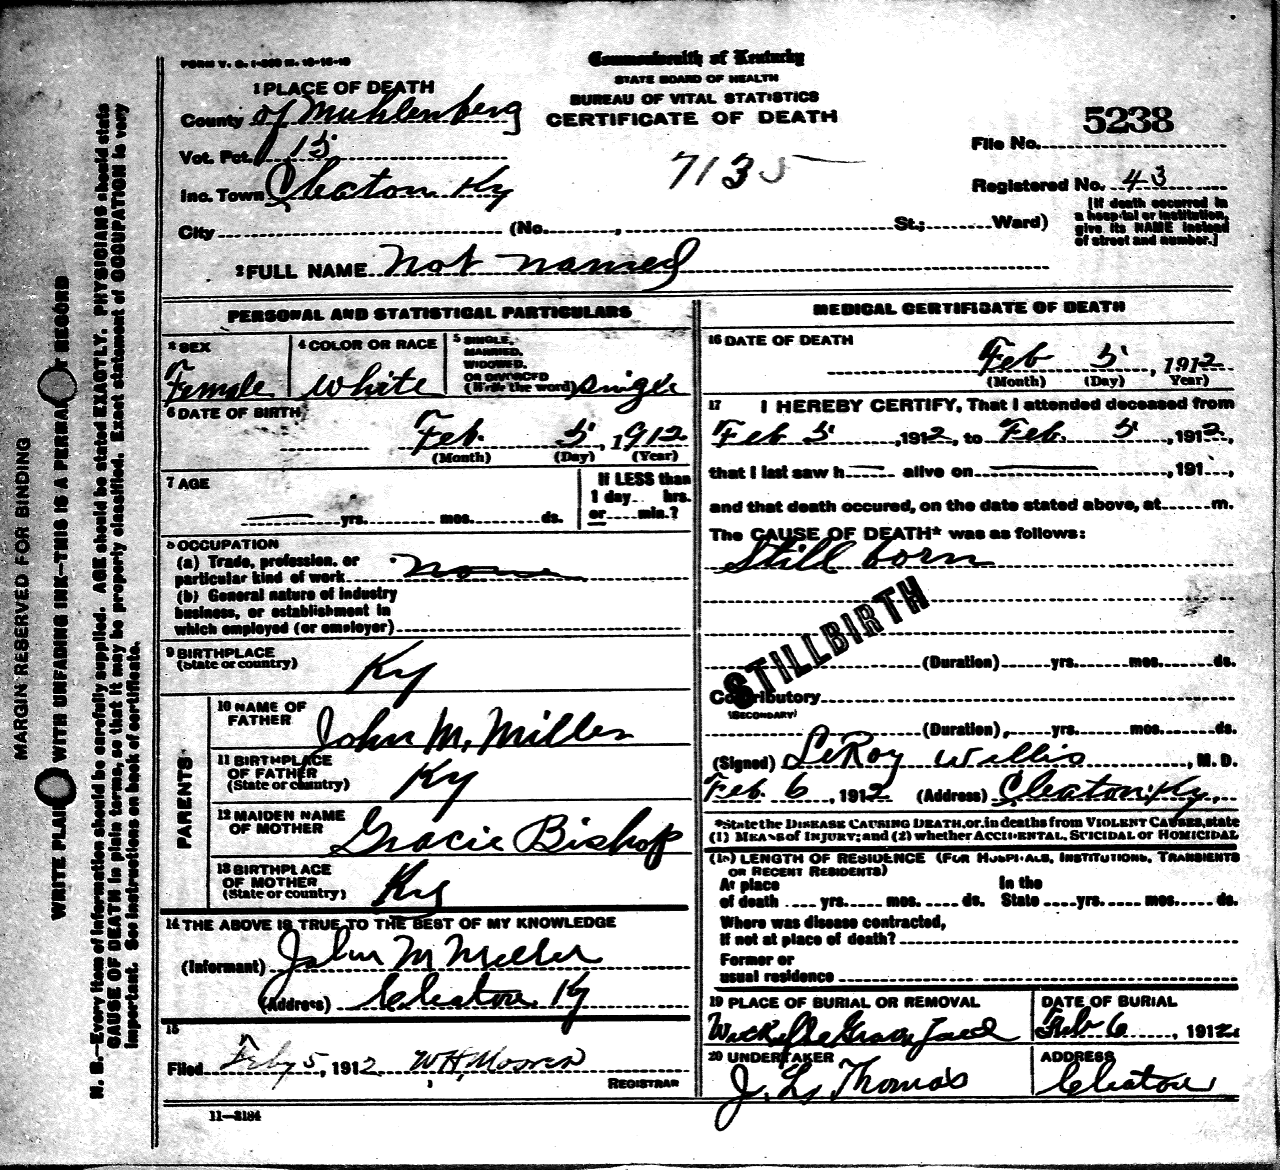 FORM V. S. 1-
Commonwealth of Kentucky
STATE BOARD OF HEALTH
BUREAU OF VITAL STATISTICS
CERTIFICATE OF DEATH
1 PLACE OF DEATH
County of Muhlenberg
Vot. Pct. 15
Inc. Town Cleaton Ky
City (No. , St.; Ward)
7135
File No. 5238
Registered No. 43
[If death occurred in
a hospital or institution,
give its NAME instead
of street and number.]
2 FULL NAME not named
PERSONAL AND STATISTICAL PARTICULARS
3 SEX
Female
4 COLOR OR RACE
White
5 SINGLE,
MARRIED,
WIDOWED,
OR DIVORCED
(Write the word) Single
6 DATE OF BIRTH
Feb. 5, 1912
(Month) (Day) (Year)
7 AGE
yrs. mos. ds.
If LESS than
1 day hrs.
or min.?
8 OCCUPATION
(a) Trade, profession, or
particular kind of work none
(b) General nature of industry
business, or establishment in
which employed (or employer)
9 BIRTHPLACE
(State or country)
Ky
PARENTS
10 NAME OF
FATHER
John M. Miller
11 BIRTHPLACE
OF FATHER
(State or country)
Ky
12 MAIDEN NAME
OF MOTHER
Gracie Bishop
13 BIRTHPLACE
OF MOTHER
(State or country)
Ky
14 THE ABOVE IS TRUE TO THE BEST OF MY KNOWLEDGE
(Informant) John M Miller
(Address) Cleaton Ky
15
Filed Feby 5, 1912 W H,
REGISTRAR
11—3184
MEDICAL CERTIFICATE OF DEATH
16 DATE OF DEATH
Feb 5, 1912
(Month) (Day) Year)
17 I HEREBY CERTIFY, That I attended deceased from
Feb 5, 1912, to Feb. 5, 1912,
that I last saw h alive on , 191 ,
and that death occured, on the date stated above, at m.
The CAUSE OF DEATH* was as follows:
Still born
STILLBIRTH
(Duration) yrs. mos. ds.
Contributory
(SECONDARY)
(Duration), yrs. mos. ds.
(Signed) LeRoy Willis, M. D.
Feb. 6, 1912 (Address) Cleaton, Ky.,
*State the DISEASE CAUSING DEATH, or, in deaths from VIOLENT CAUSES, state
(1) MEANS of INJURY; and (2) whether ACCIDENTAL, SUICIDAL or HOMICIDAL
(18) LENGTH OF RESIDENCE (FOR HOSPITALS, INSTITUTIONS, TRANSIENTS
OR RECENT RESIDENTS)
At place
of death yrs. mos. ds.
In the
State yrs. mos. ds.
Where was disease contracted,
If not at place of death?
Former or
usual residence
19 PLACE OF BURIAL OR REMOVAL
Grave Yard
DATE OF BURIAL
Feb 6, 1912
20 UNDERTAKER
J. L. Thomas
ADDRESS
Cleaton
MARGIN RESERVED FOR BINDING
WRITE PLAIN WITH UNFADING INK—THIS IS A PERMA RECORD
N. B.—Every item of information should be carefully supplied. AGE should be stated EXACTLY. PHYSICIANS should state
CAUSE OF DEATH in plain terms, so that it may be properly classified. Exact statement of OCCUPATION is very
important. See instructions on back of certificate.